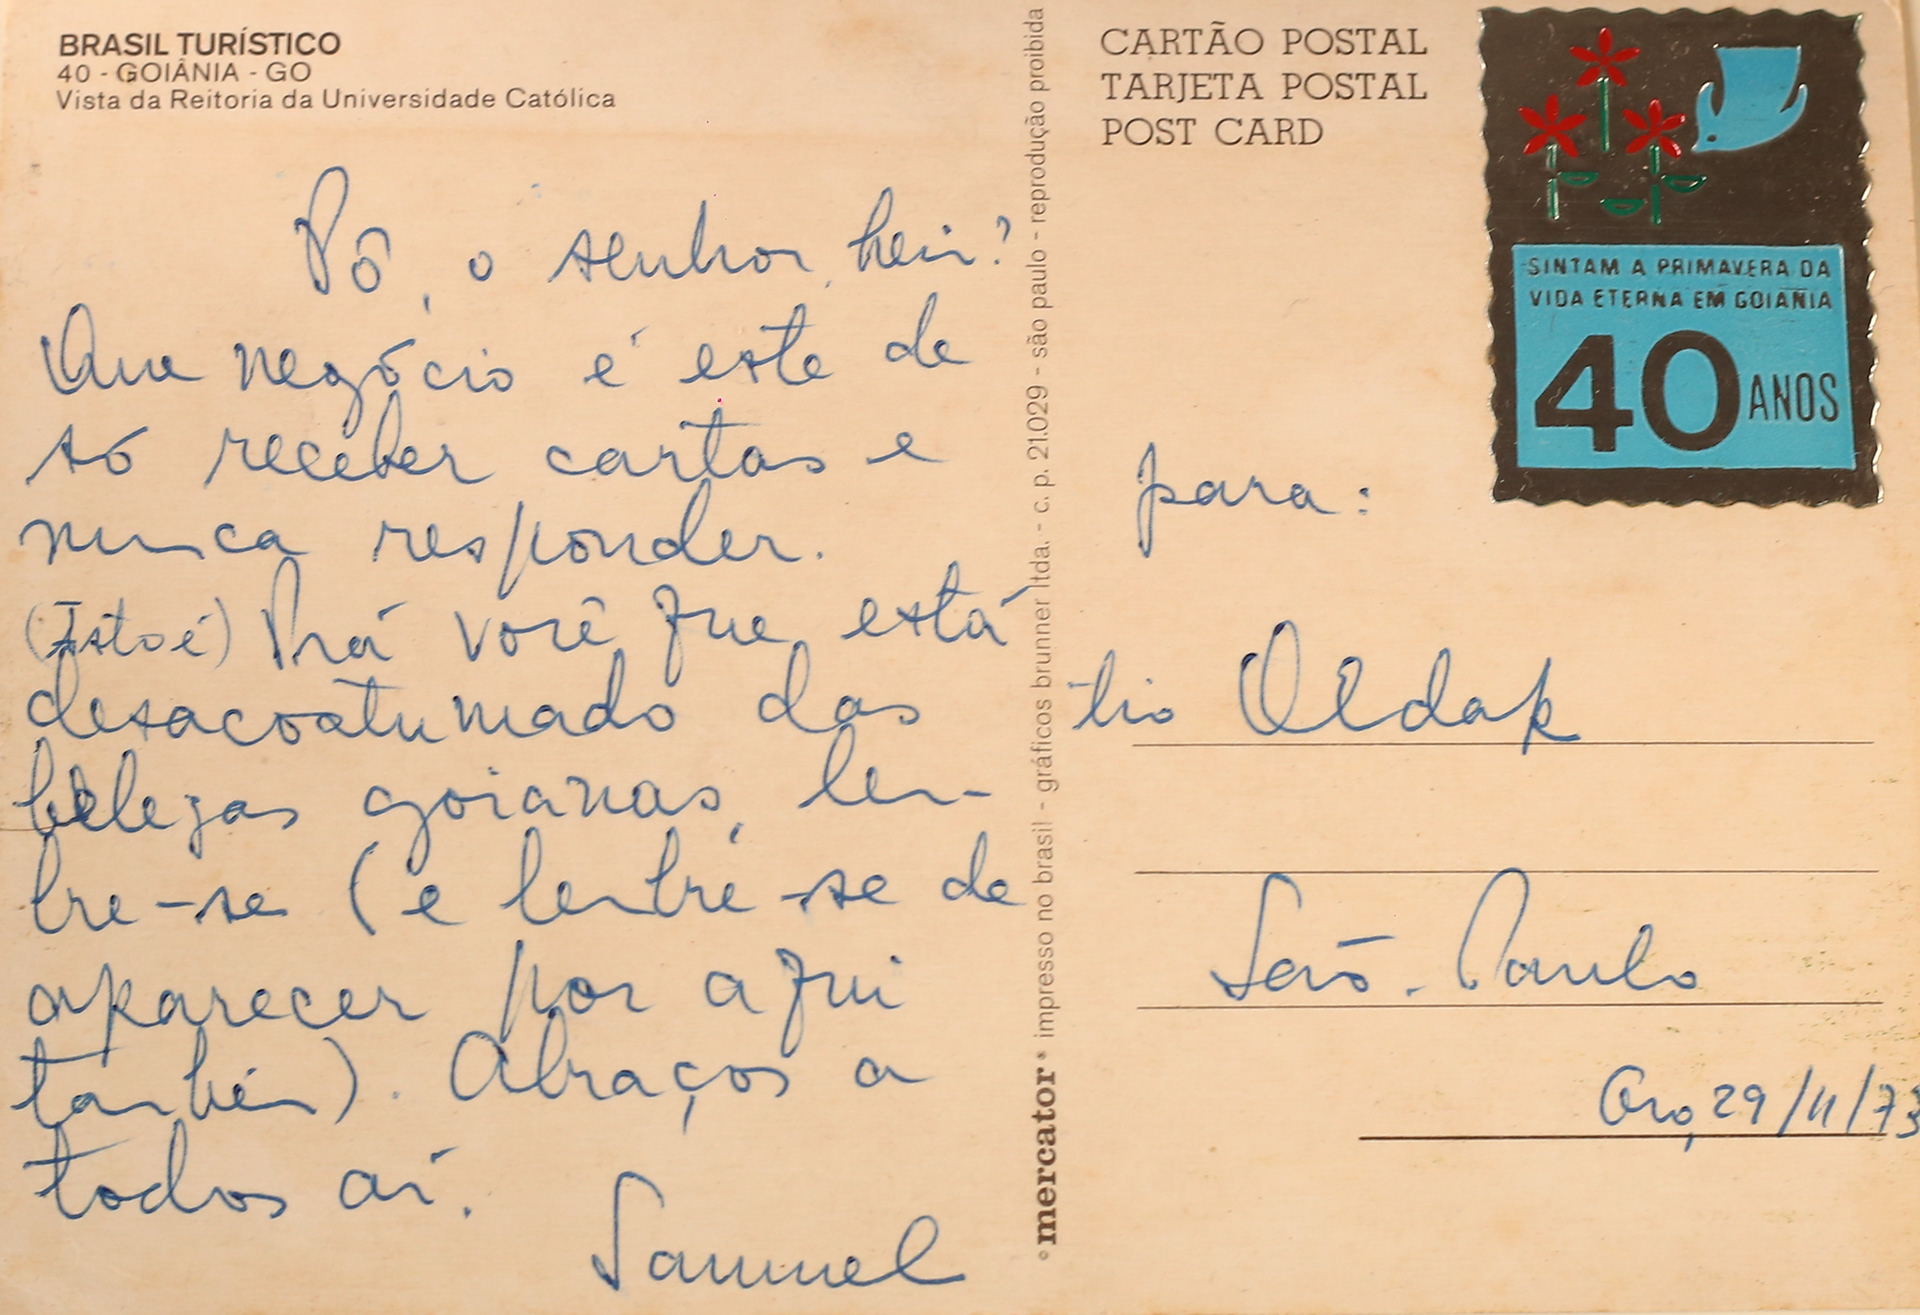 BRASIL TURÍSTICO
40 - GOIÂNIA - GO
Vista da Reitoria da Universidade Católica
Pô, o senhor, hein?
Que negócio é este de
só receber cartas e
nunca responder.
(Isto é) Prá você que está
desacostumado das
belezas goianas, lem-
bre-se (e lembre-se de
aparecer por aqui
também). Abraços a
todos aí.
Samuel
°mercator° impresso no brasil - gráficos brunner ltda. - c. p. 21.029 - são paulo - reprodução proibida
CARTÃO POSTAL
TARJETA POSTAL
POST CARD
SINTAM A PRIMAVERA DA
VIDA ETERNA EM GOIANIA
40 ANOS
para:
tio Oldak
São. Paulo
Gno, 29/11/73